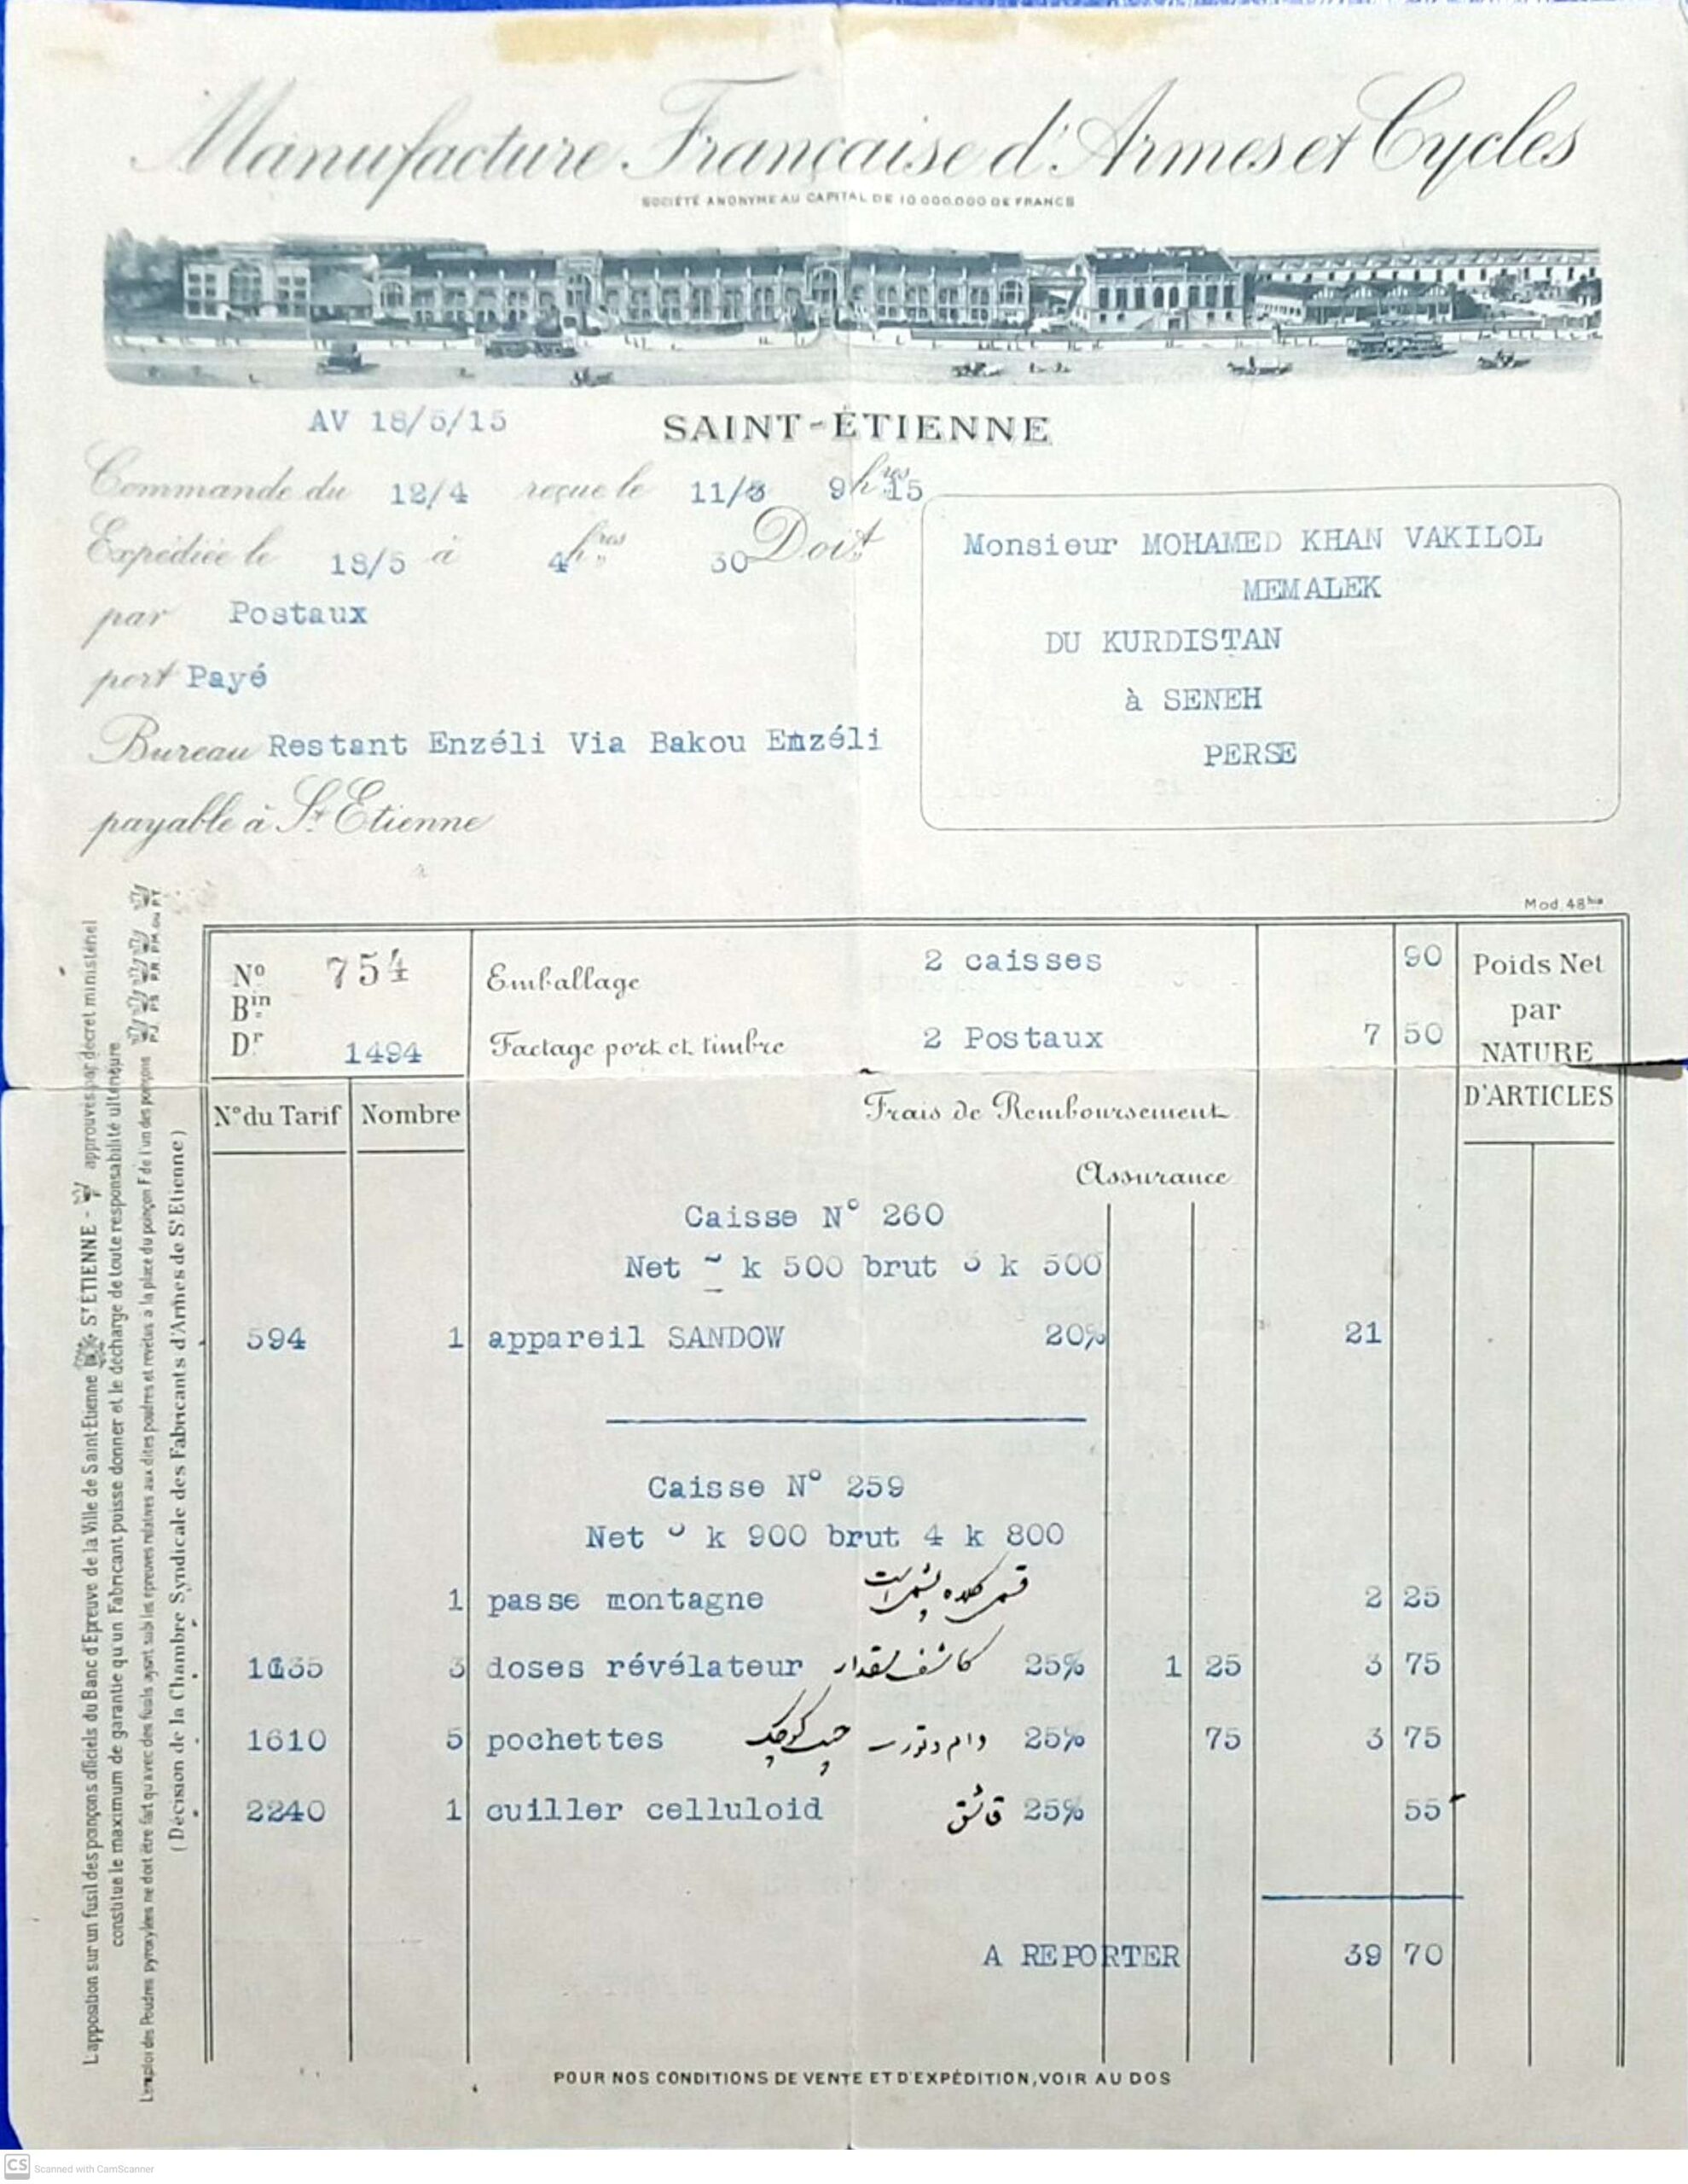 Manufacture Française d'Armes et Cycles
SOCIÉTÉ ANONYME AU CAPITAL DE 10.000.000 DE FRANCS
AV 18/5/15
SAINT-ÉTIENNE
Commande du 12/4 reçue le 11/5 9 hres 15
Expédiée le 18/5 à 4 hres 30 Doit
par Postaux
port Payé
Bureau Restant Enzéli Via Bakou Enzéli
payable à St Etienne
Monsieur MOHAMED KHAN VAKILOL
MEMALEK
DU KURDISTAN
à SENEH
PERSE
Mod. 48 bis
No 754
Bin
Dr 1494
Emballage 2 caisses 90
Factage port et timbre 2 Postaux 7 50
Poids Net
par
NATURE
D'ARTICLES
N° du Tarif Nombre
Frais de Remboursement
Assurance
Caisse N° 260
Net k 500 brut 3 k 500
594 1 appareil SANDOW 20% 21
Caisse N° 259
Net k 900 brut 4 k 800
1 passe montagne قسمی کلاه پشمی است 2 25
1135 3 doses révélateur کاشف مقدار 25% 1 25 3 75
1610 5 pochettes جیب کوچک 25% 75 3 75
2240 1 cuiller celluloid قاشق 25% 55
A REPORTER 39 70
POUR NOS CONDITIONS DE VENTE ET D'EXPÉDITION, VOIR AU DOS
L'apposition sur un fusil des poinçons officiels du Banc d'Epreuve de la Ville de Saint-Etienne ST ETIENNE - approuvés par décret ministériel
constitue le maximum de garantie qu'un Fabricant puisse donner et le décharge de toute responsabilité ultérieure
L'emploi des Poudres pyroxylées ne doit être fait qu'avec des fusils ayant subi les épreuves relatives aux dites poudres et revêtus à la place du poinçon F de l'un des poinçons PJ. PS PR. PM. ou PT.
(Décision de la Chambre Syndicale des Fabricants d'Armes de St Etienne)
CS Scanned with CamScanner